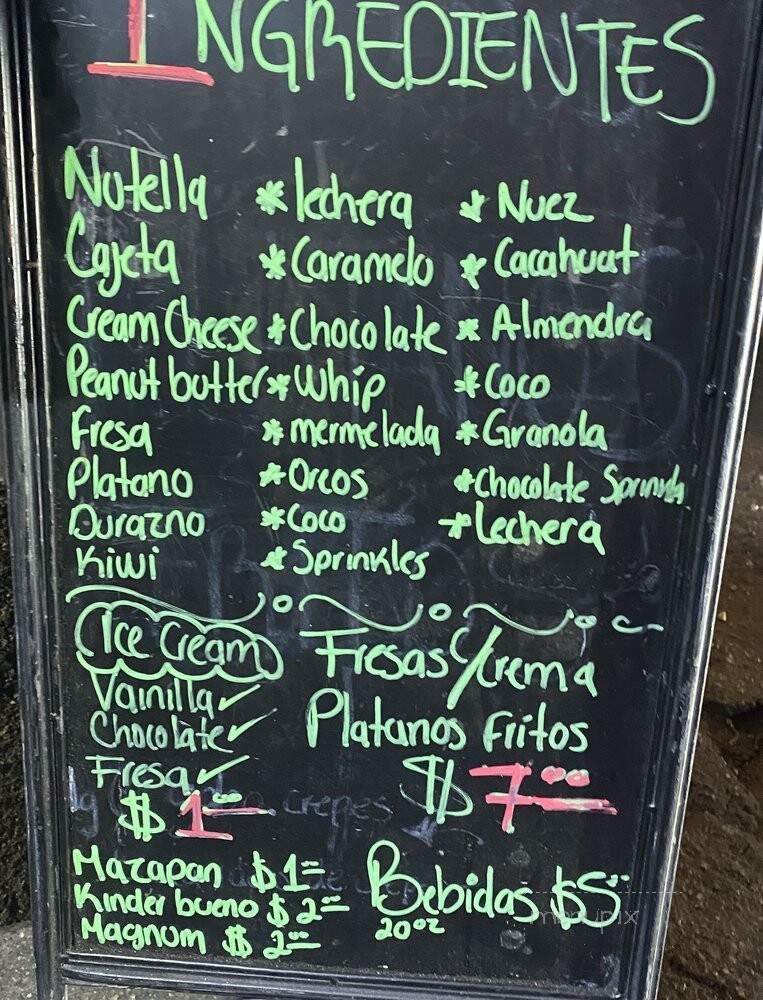 INGREDIENTES
Nutella * lechera * Nuez
Cajeta * Caramelo * Cacahuat
Cream Cheese * Chocolate * Almendra
Peanut butter * Whip * Coco
Fresa * mermelada * Granola
Platano * Oreos * Chocolate Sprinkls
Durazno * Coco * Lechera
Kiwi * Sprinkles
Ice Cream
Vainilla ✓
Chocolate ✓
Fresa ✓
$ 1.00
Fresas c/crema
Platanos Fritos
$ 7.00
crepes
Mazapan $ 1=
Kinder bueno $ 2=
Magnum $ 2.00
Bebidas $5
20oz
menupix